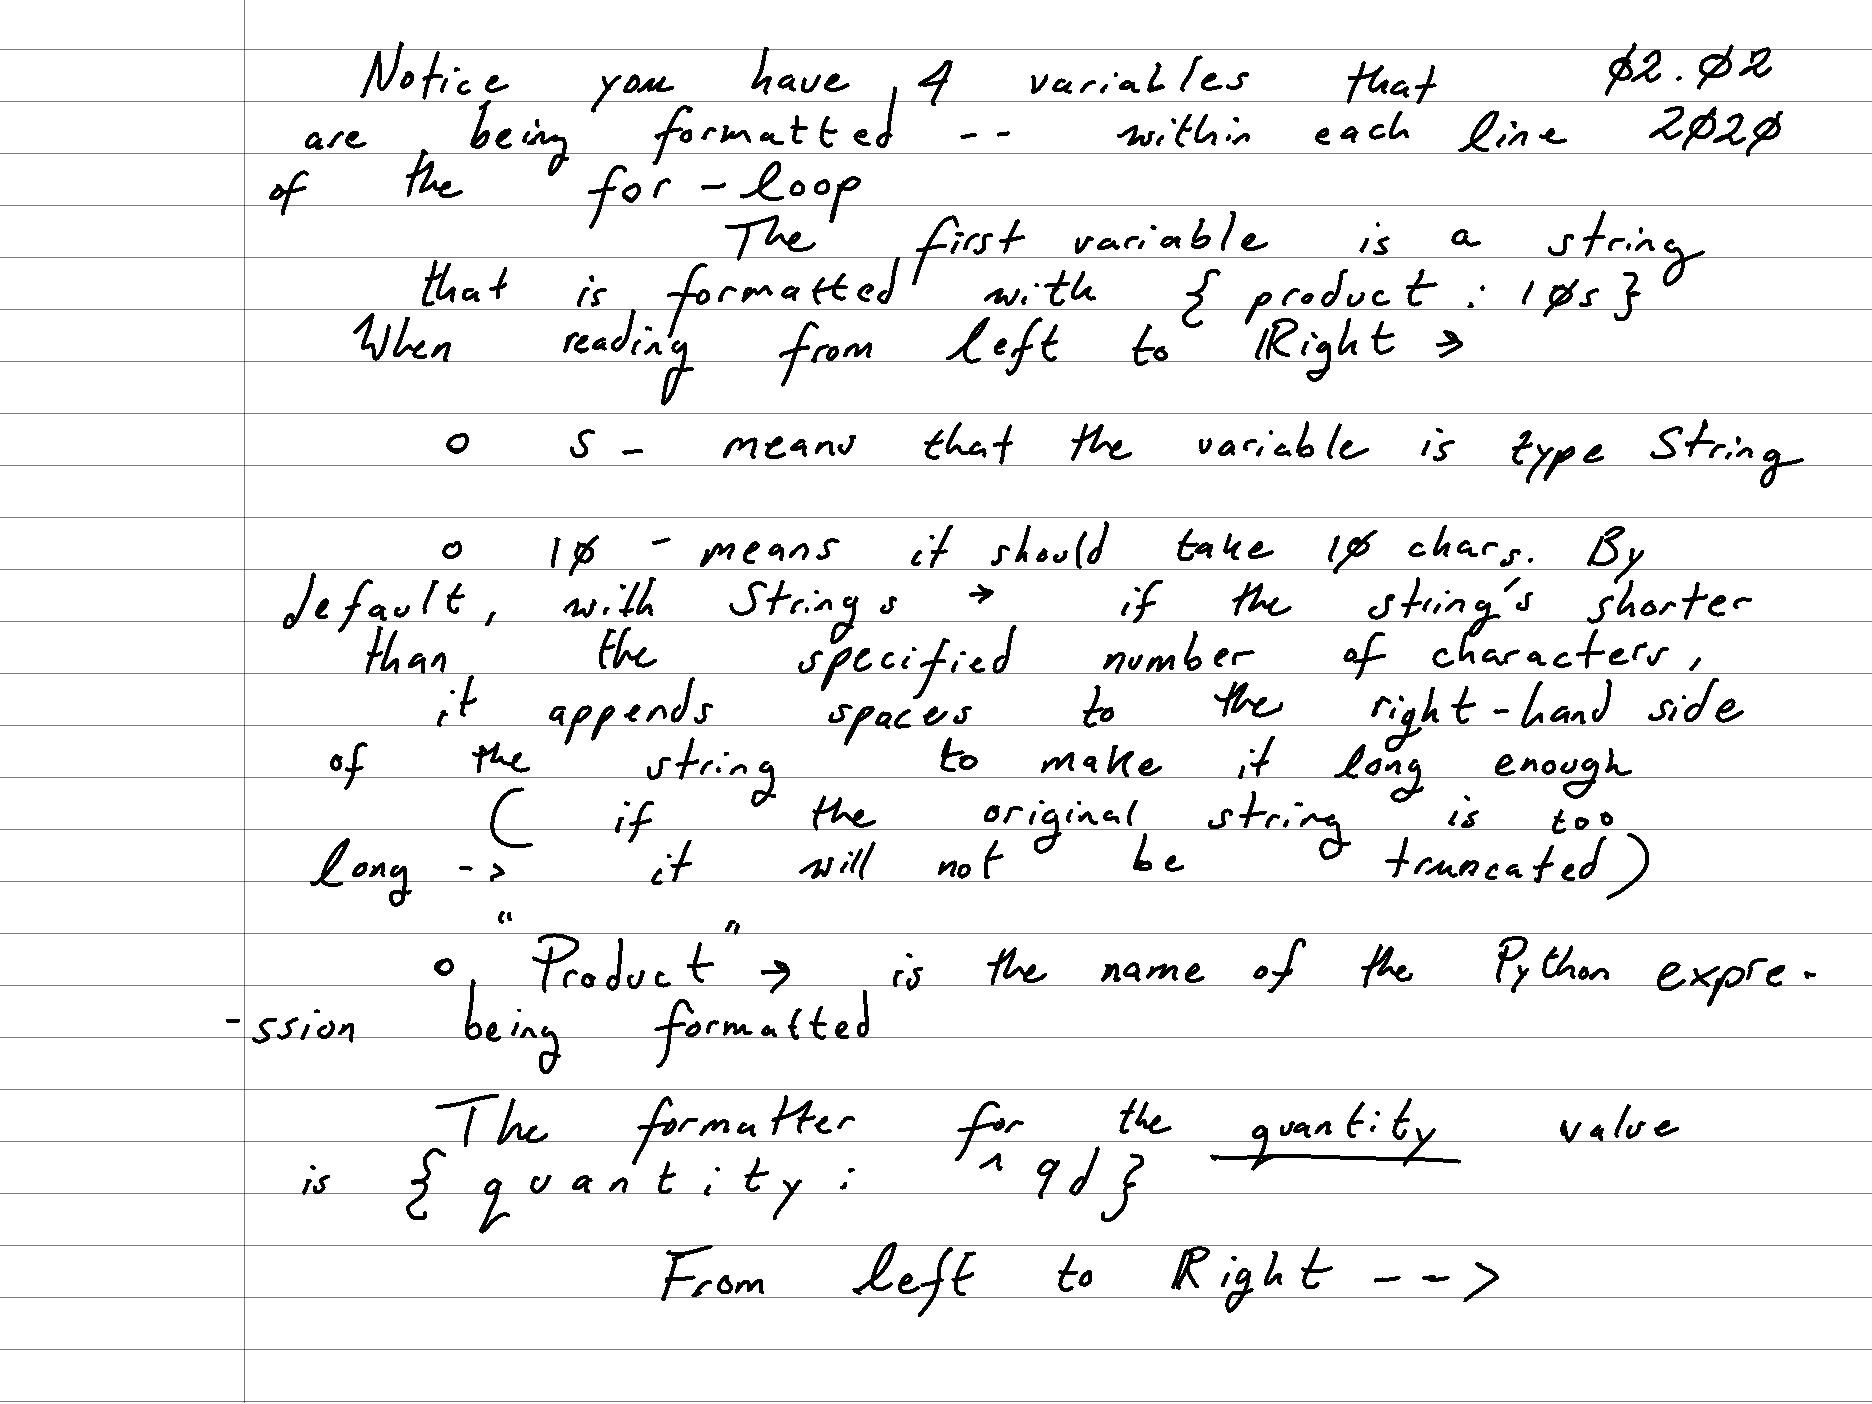 Notice you have 4 variables that ø2.ø2
are being formatted -- within each line 2ø2ø
of the for-loop
The first variable is a string
that is formatted with { product : 1øs }
When reading from left to Right →
o s - means that the variable is type String
o 1ø - means it should take 1ø chars. By
default, with Strings → if the string's shorter
than the specified number of characters,
it appends spaces to the right-hand side
of the string to make it long enough
( if the original string is too
long -> it will not be truncated)
o "Product" → is the name of the Python expre-
-ssion being formatted
The formatter for the quantity value
is { quantity : ^ 9d }
From left to Right -->